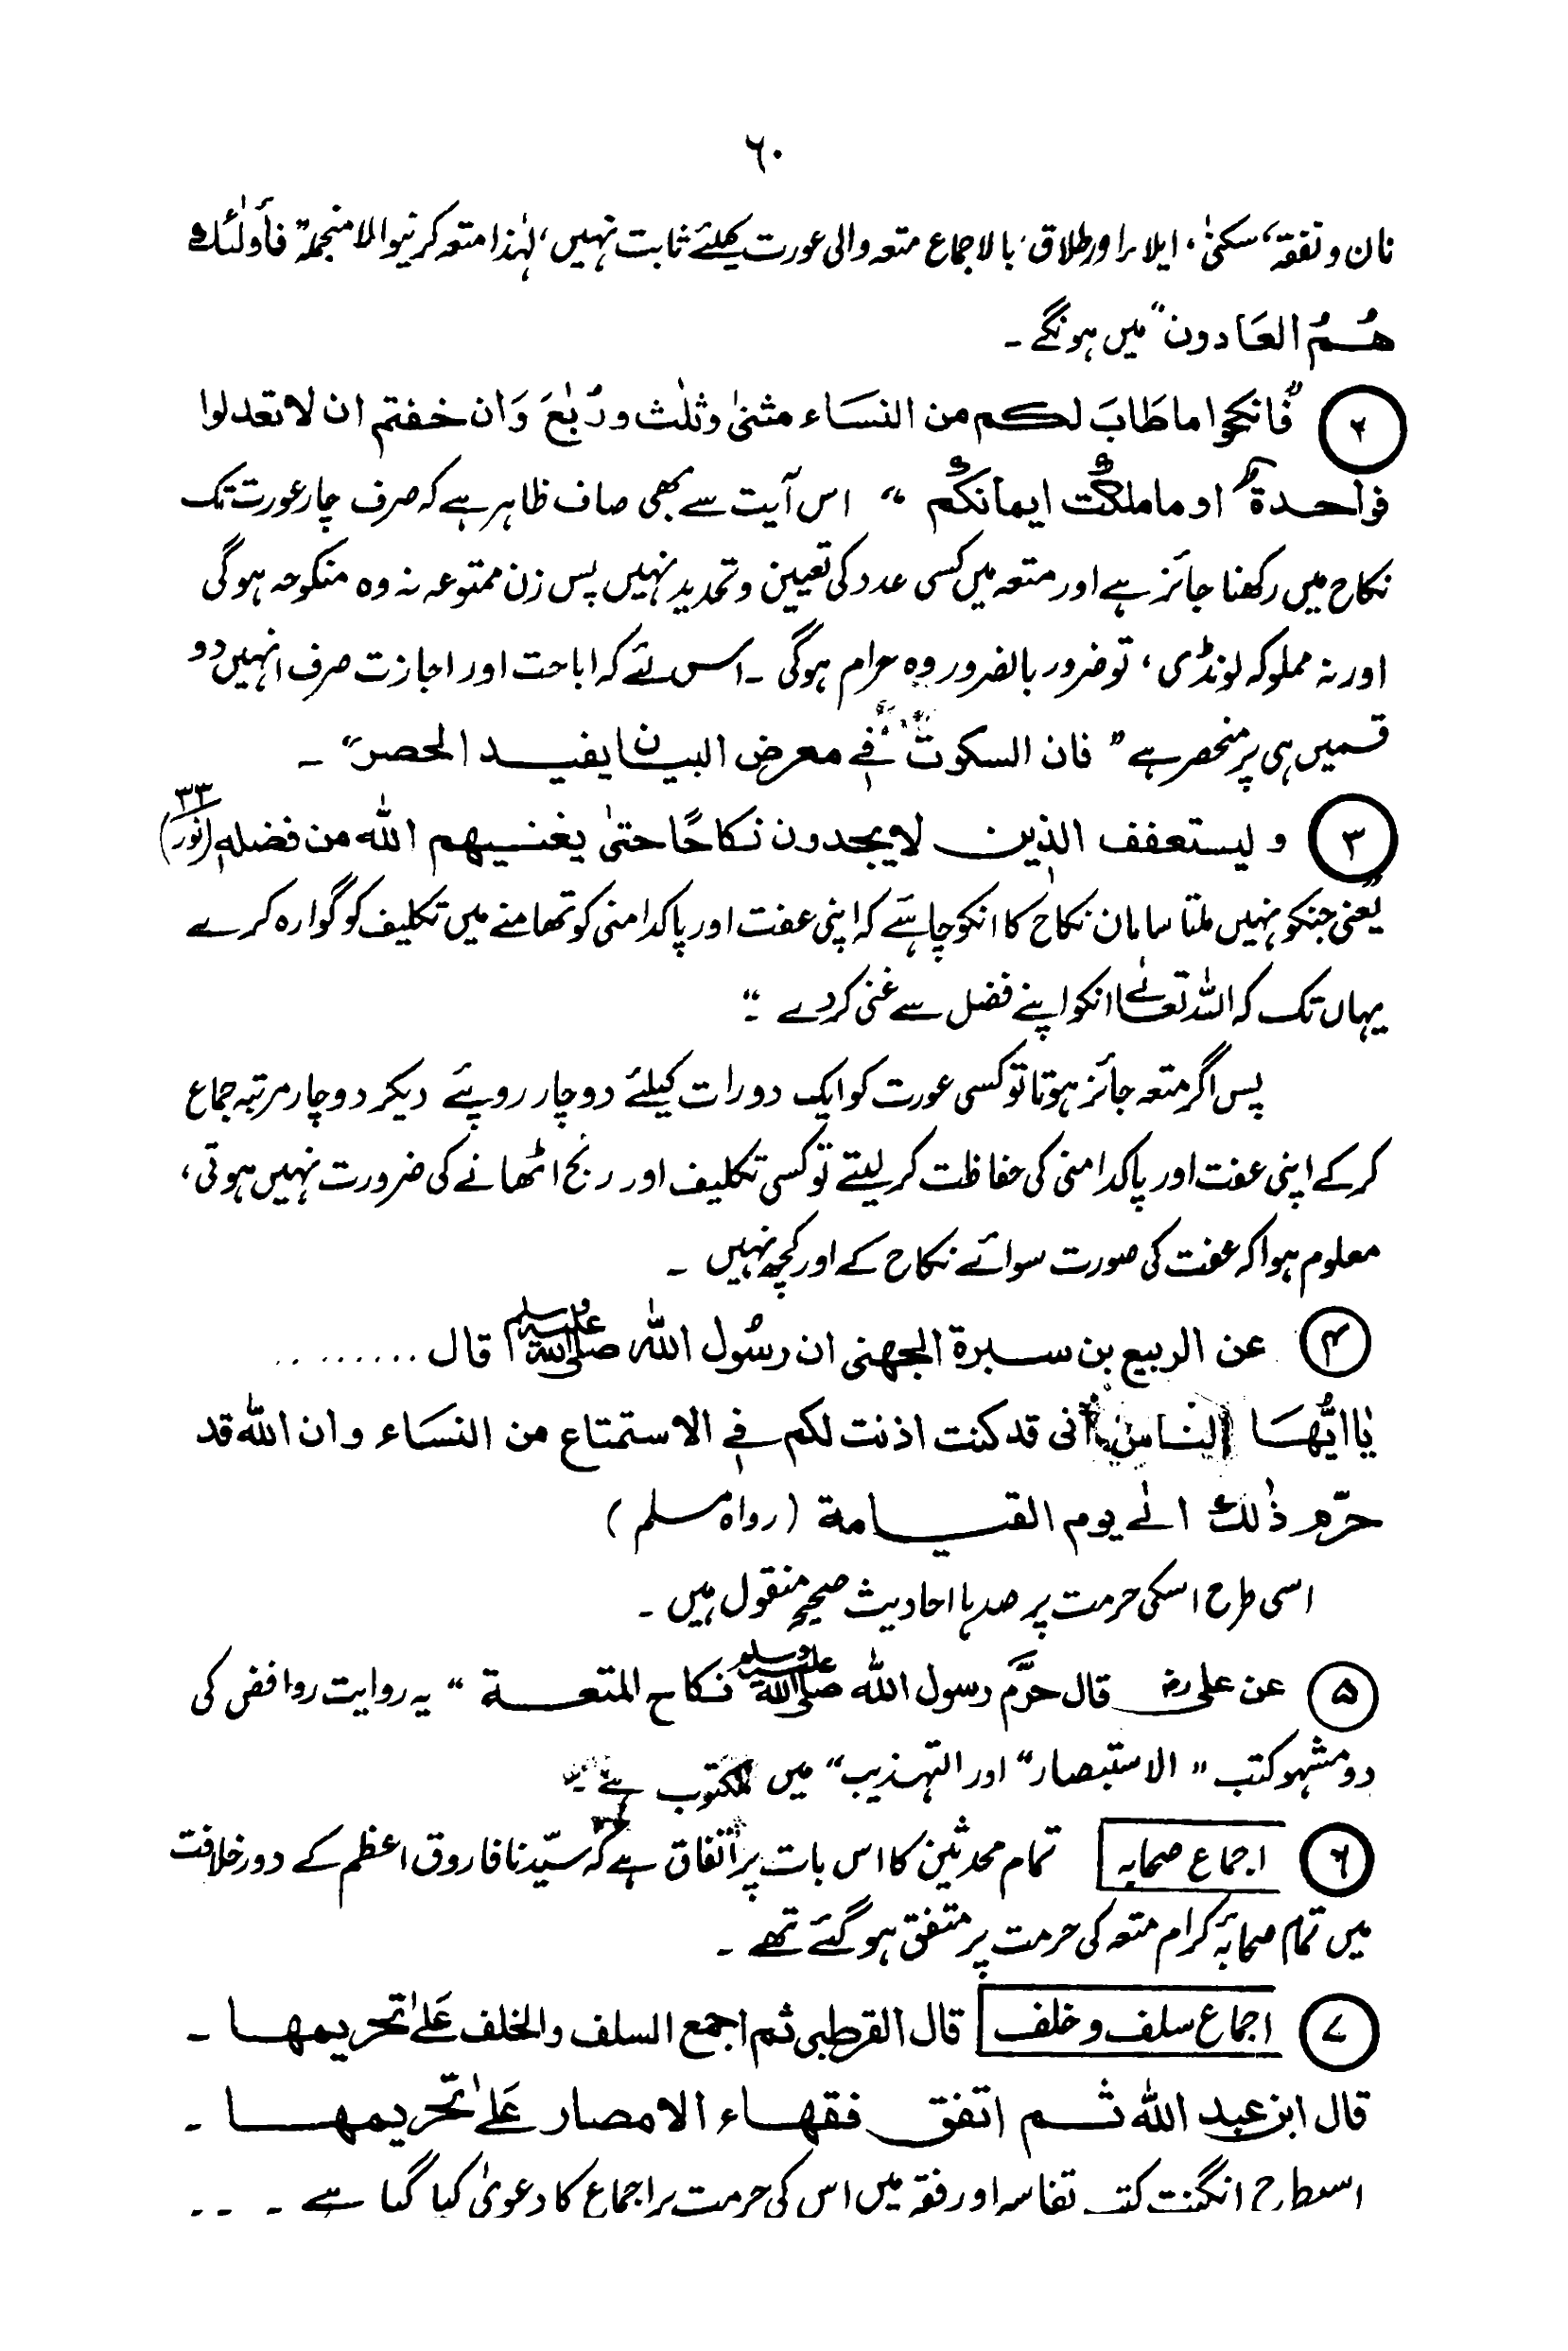 ۶۰
نان و نفقہ، سکنیٰ، ایلاء اور طلاق، بالاجماع متعہ والی عورت کیلئے ثابت نہیں، لہٰذا متعہ کرنیوالا منجملہ "فأولٰئك
هُمُ العَادون" میں ہونگے ۔
(۲) "فَانكحوا ماطَابَ لكم من النسَاء مثنىٰ وثلٰث ورُبٰعَ وَان خفتم ان لا تعدلوا
فواحدةً او ما ملكت ايمانكم" اس آیت سے بھی صاف ظاہر ہے کہ صرف چار عورت تک
نکاح میں رکھنا جائز ہے اور متعہ میں کسی عدد کی تعیین و تحدید نہیں پس زن ممتوعہ نہ وہ منکوحہ ہوگی
اور نہ مملوکہ لونڈی، تو ضرور بالضرور وہ حرام ہوگی ۔ اس لئے کہ اباحت اور اجازت صرف انہیں دو
قسمیں ہی پر منحصر ہے "فان السكوت في معرض البيان يفيد الحصر" ۔
(۳) وليستعفف الذين لا يجدون نكاحًا حتىٰ يغنيهم الله من فضله (نور ۳۳)
"یعنی جنکو نہیں ملتا سامان نکاح کا انکو چاہئے کہ اپنی عفت اور پاکدامنی کو تھامنے میں تکلیف کو گوارہ کرے
یہاں تک کہ اللہ تعالےٰ انکو اپنے فضل سے غنی کردے ۔"
پس اگر متعہ جائز ہوتا تو کسی عورت کو ایک دو رات کیلئے دو چار روپئے دیکر دو چار مرتبہ جماع
کرکے اپنی عفت اور پاکدامنی کی حفاظت کرلیتے تو کسی تکلیف اور رنج اٹھانے کی ضرورت نہیں ہوتی،
معلوم ہوا کہ عفت کی صورت سوائے نکاح کے اور کچھ نہیں ۔
(۴) عن الربيع بن سبرة الجهنى ان رسُول الله صلى الله عليه وسلم قال .........
يٰاايُّهَا الناس انى قد كنت اذنت لكم في الاستمتاع من النسَاء وان الله قد
حرّم ذٰلك الىٰ يوم القيامة (رواه مسلم)
اسی طرح اسکی حرمت پر صدہا احادیث صحیحہ منقول ہیں ۔
(۵) عن علیؓ قال حرَّم رسول الله صلى الله عليه وسلم نكاح المتعة" یہ روایت روافض کی
دو مشہو کتب "الاستبصار" اور التہذیب" میں مکتوب ہے ۔
(۶) اجماع صحابہ تمام محدثین کا اس بات پر اتفاق ہے کہ سیّدنا فاروق اعظم کے دور خلافت
میں تمام صحابۂ کرام متعہ کی حرمت پر متفق ہوگئے تھے ۔
(۷) اجماع سلف و خلف قال القرطبى ثم اجمع السلف والخلف عَلىٰ تحريمها ۔
قال ابن عبد الله ثم اتفق فقهاء الامصار عَلىٰ تحريمها ۔
اسطرح انگنت کتب تفاسیر اور فقہ میں اس کی حرمت پر اجماع کا دعویٰ کیا گیا ہے ۔ ۔ ۔